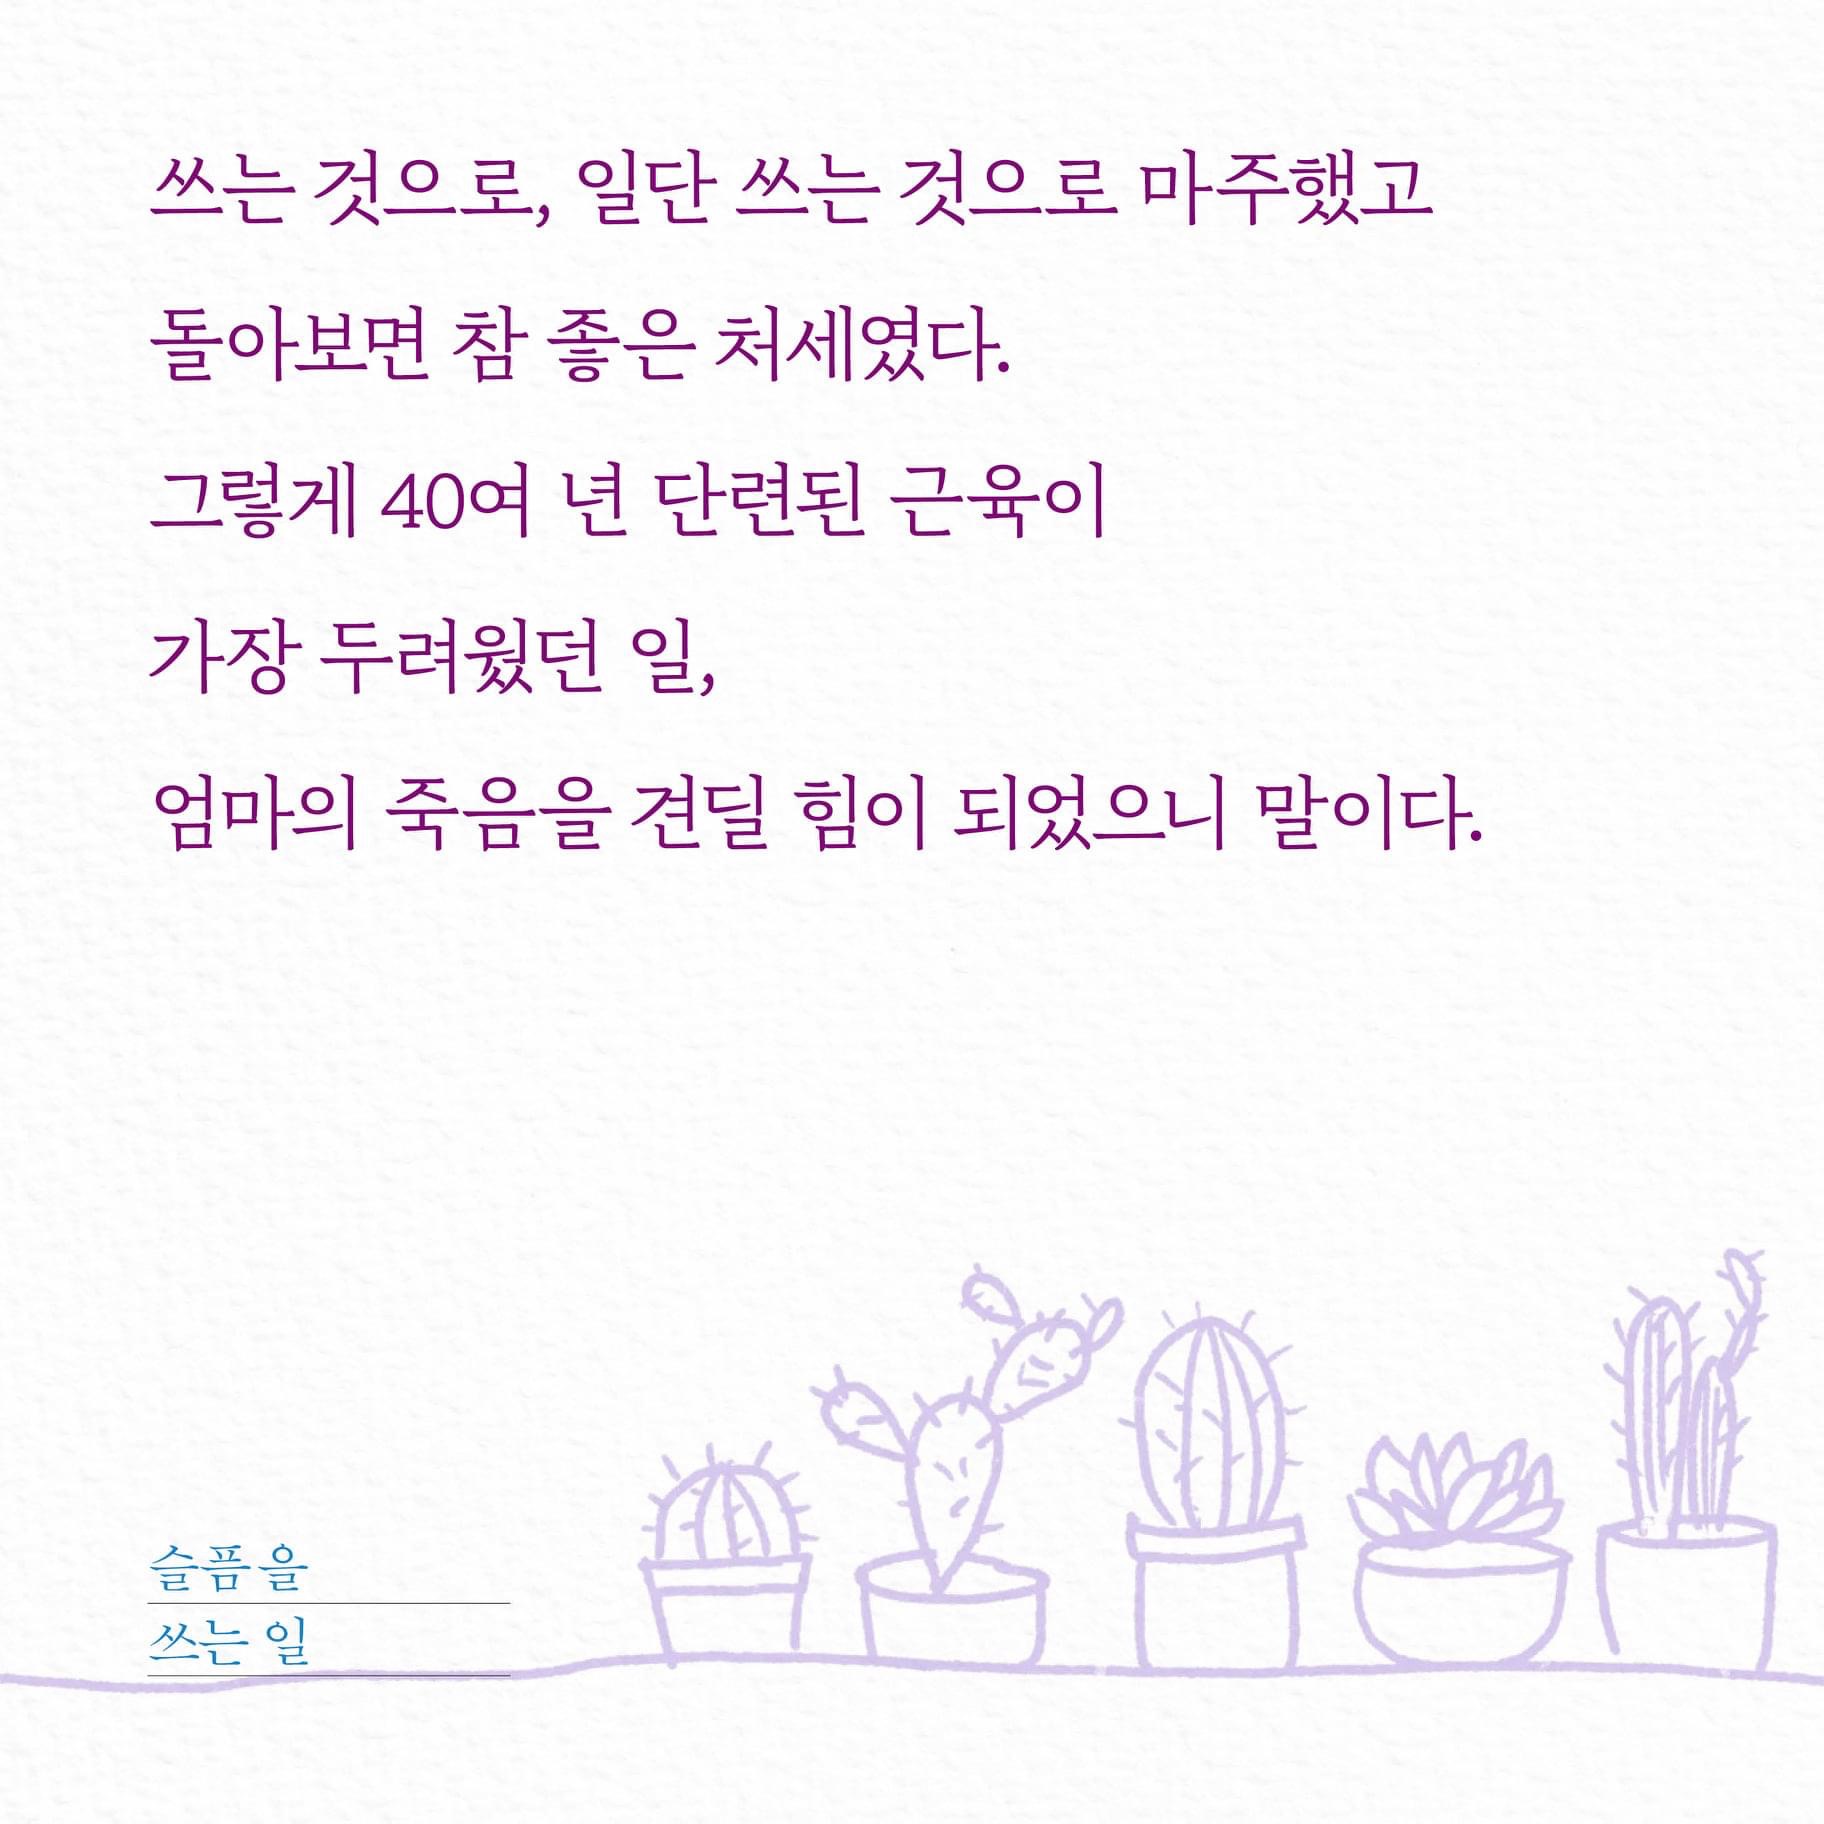 쓰는 것으로, 일단 쓰는 것으로 마주했고
돌아보면 참 좋은 처세였다.
그렇게 40여 년 단련된 근육이
가장 두려웠던 일,
엄마의 죽음을 견딜 힘이 되었으니 말이다.
슬픔을
쓰는 일